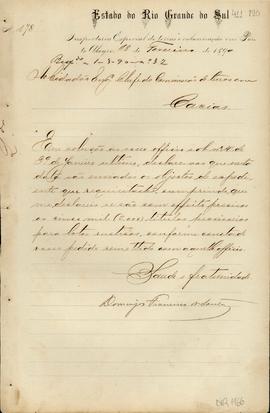 Estado do Rio Grande do Sul
Nº 178
Inspectoria Especial de terras e colonisação em Por-
to Alegre, de Fevereiro de 1890
Ao Cidadão Engº Chefe da Commissão de terras em
Caxias.
Em solução ao seu officio sob nº de
de Janeiro ultimo, declaro vos que nesta
data são enviados os objectos de expedi-
ente que requisitastes, cumprindo que
me declareis se são com effeito precisos
os cinco mil (5,000) titulos provisorios
para lotes rusticos, conforme consta do
vosso pedido remettido com aquelle officio.
Saude e fraternidade
Domingos Francisco dos Santos